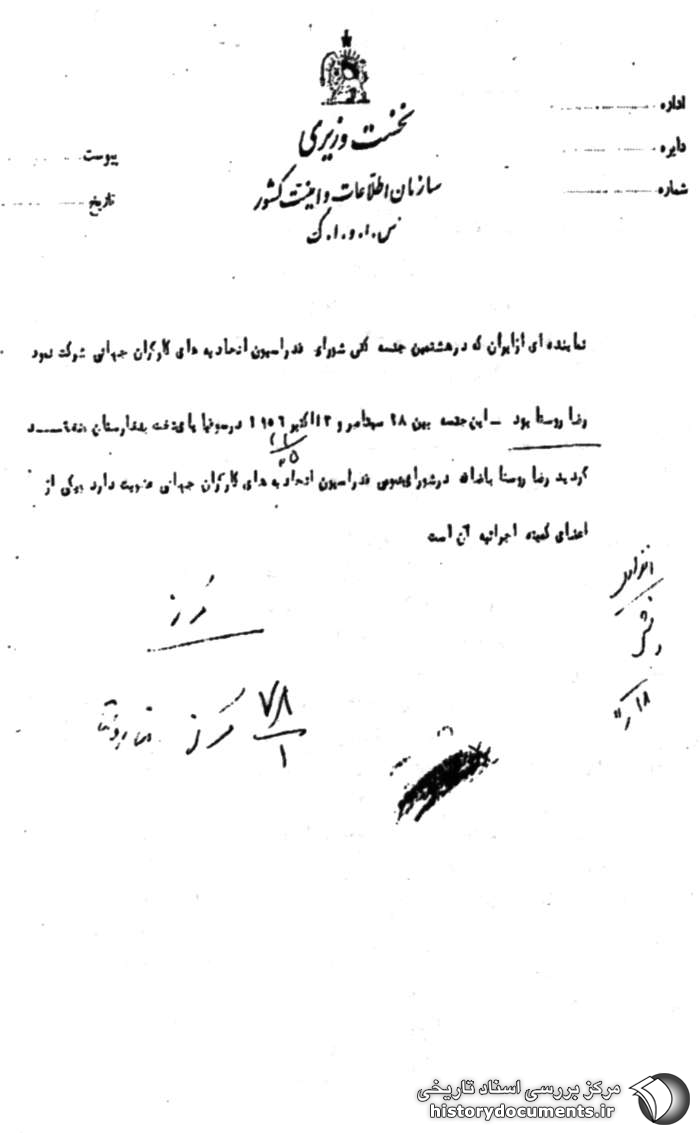 نخست وزیری
سازمان اطلاعات و امنیت کشور
س.ا.و.ا.ک
اداره
دایره
شماره
پیوست
تاریخ
نماینده ای از ایران که در هشتمین جلسه کلی شورای فدراسیون اتحادیه های کارگران جهانی شرکت نمود
رضا روستا بود - این جلسه بین ۲۸ سپتامبر و ۳ اکتبر ۱۹۵۶ در صوفیا پایتخت بلغارستان منعقد
گردید رضا روستا باضافه در شورای عمومی فدراسیون اتحادیه های کارگران جهانی عضویت دارد و یکی از
اعضای کمیته اجرائیه آن است
مرکز
۷۸
۱
مرکز
مرکز بررسی اسناد تاریخی
historydocuments.ir